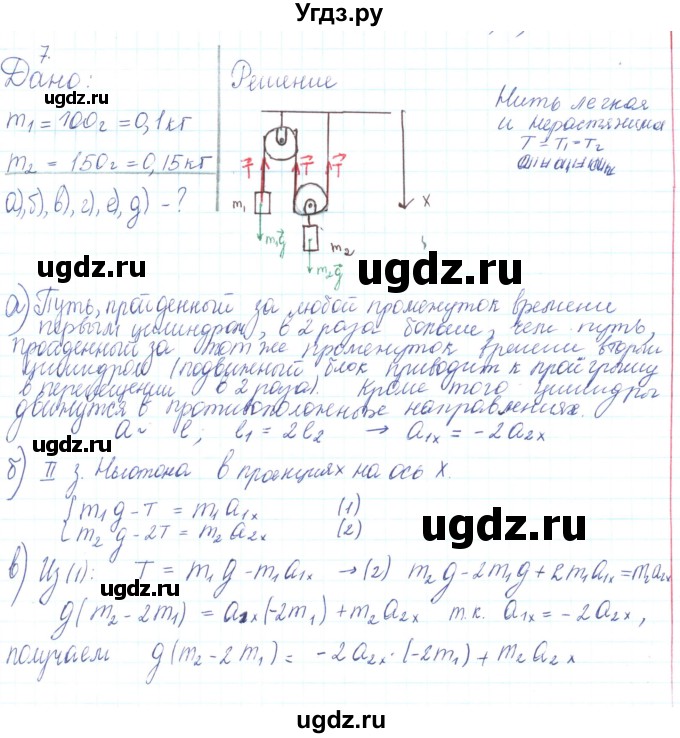 Угдз.ру
7.
Дано:
m₁ = 100г = 0,1кг
m₂ = 150г = 0,15кг
а), б), в), г), е), д) – ?
Решение
Нить легкая
и нерастяжима
T = T₁ = T₂
T⃗ T⃗ T⃗
m₁ X
m₁g⃗ m₂
m₂g⃗
ugdz.ru ugdz.ru
а) Путь, пройденный за любой промежуток времени
первым цилиндром, в 2 раза больше, чем путь,
пройденный за тот же промежуток времени вторым
цилиндром (подвижный блок приводит к проигрышу
в перемещении в 2 раза). Кроме того цилиндры
движутся в противоположных направлениях.
a ~ l; l₁ = 2l₂ → a₁ₓ = -2a₂ₓ
б) II з. Ньютона в проекциях на ось X.
{ m₁g - T = m₁a₁ₓ (1)
m₂g - 2T = m₂a₂ₓ (2)
ugdz.ru
в) Из (1): T = m₁g - m₁a₁ₓ → (2) m₂g - 2m₁g + 2m₁a₁ₓ = m₂a₂ₓ
ugdz.ru
g(m₂ - 2m₁) = a₁ₓ(-2m₁) + m₂a₂ₓ т.к. a₁ₓ = -2a₂ₓ,
получаем g(m₂ - 2m₁) = -2a₂ₓ·(-2m₁) + m₂a₂ₓ
ugdz.ru ugdz.ru
ugdz.ru